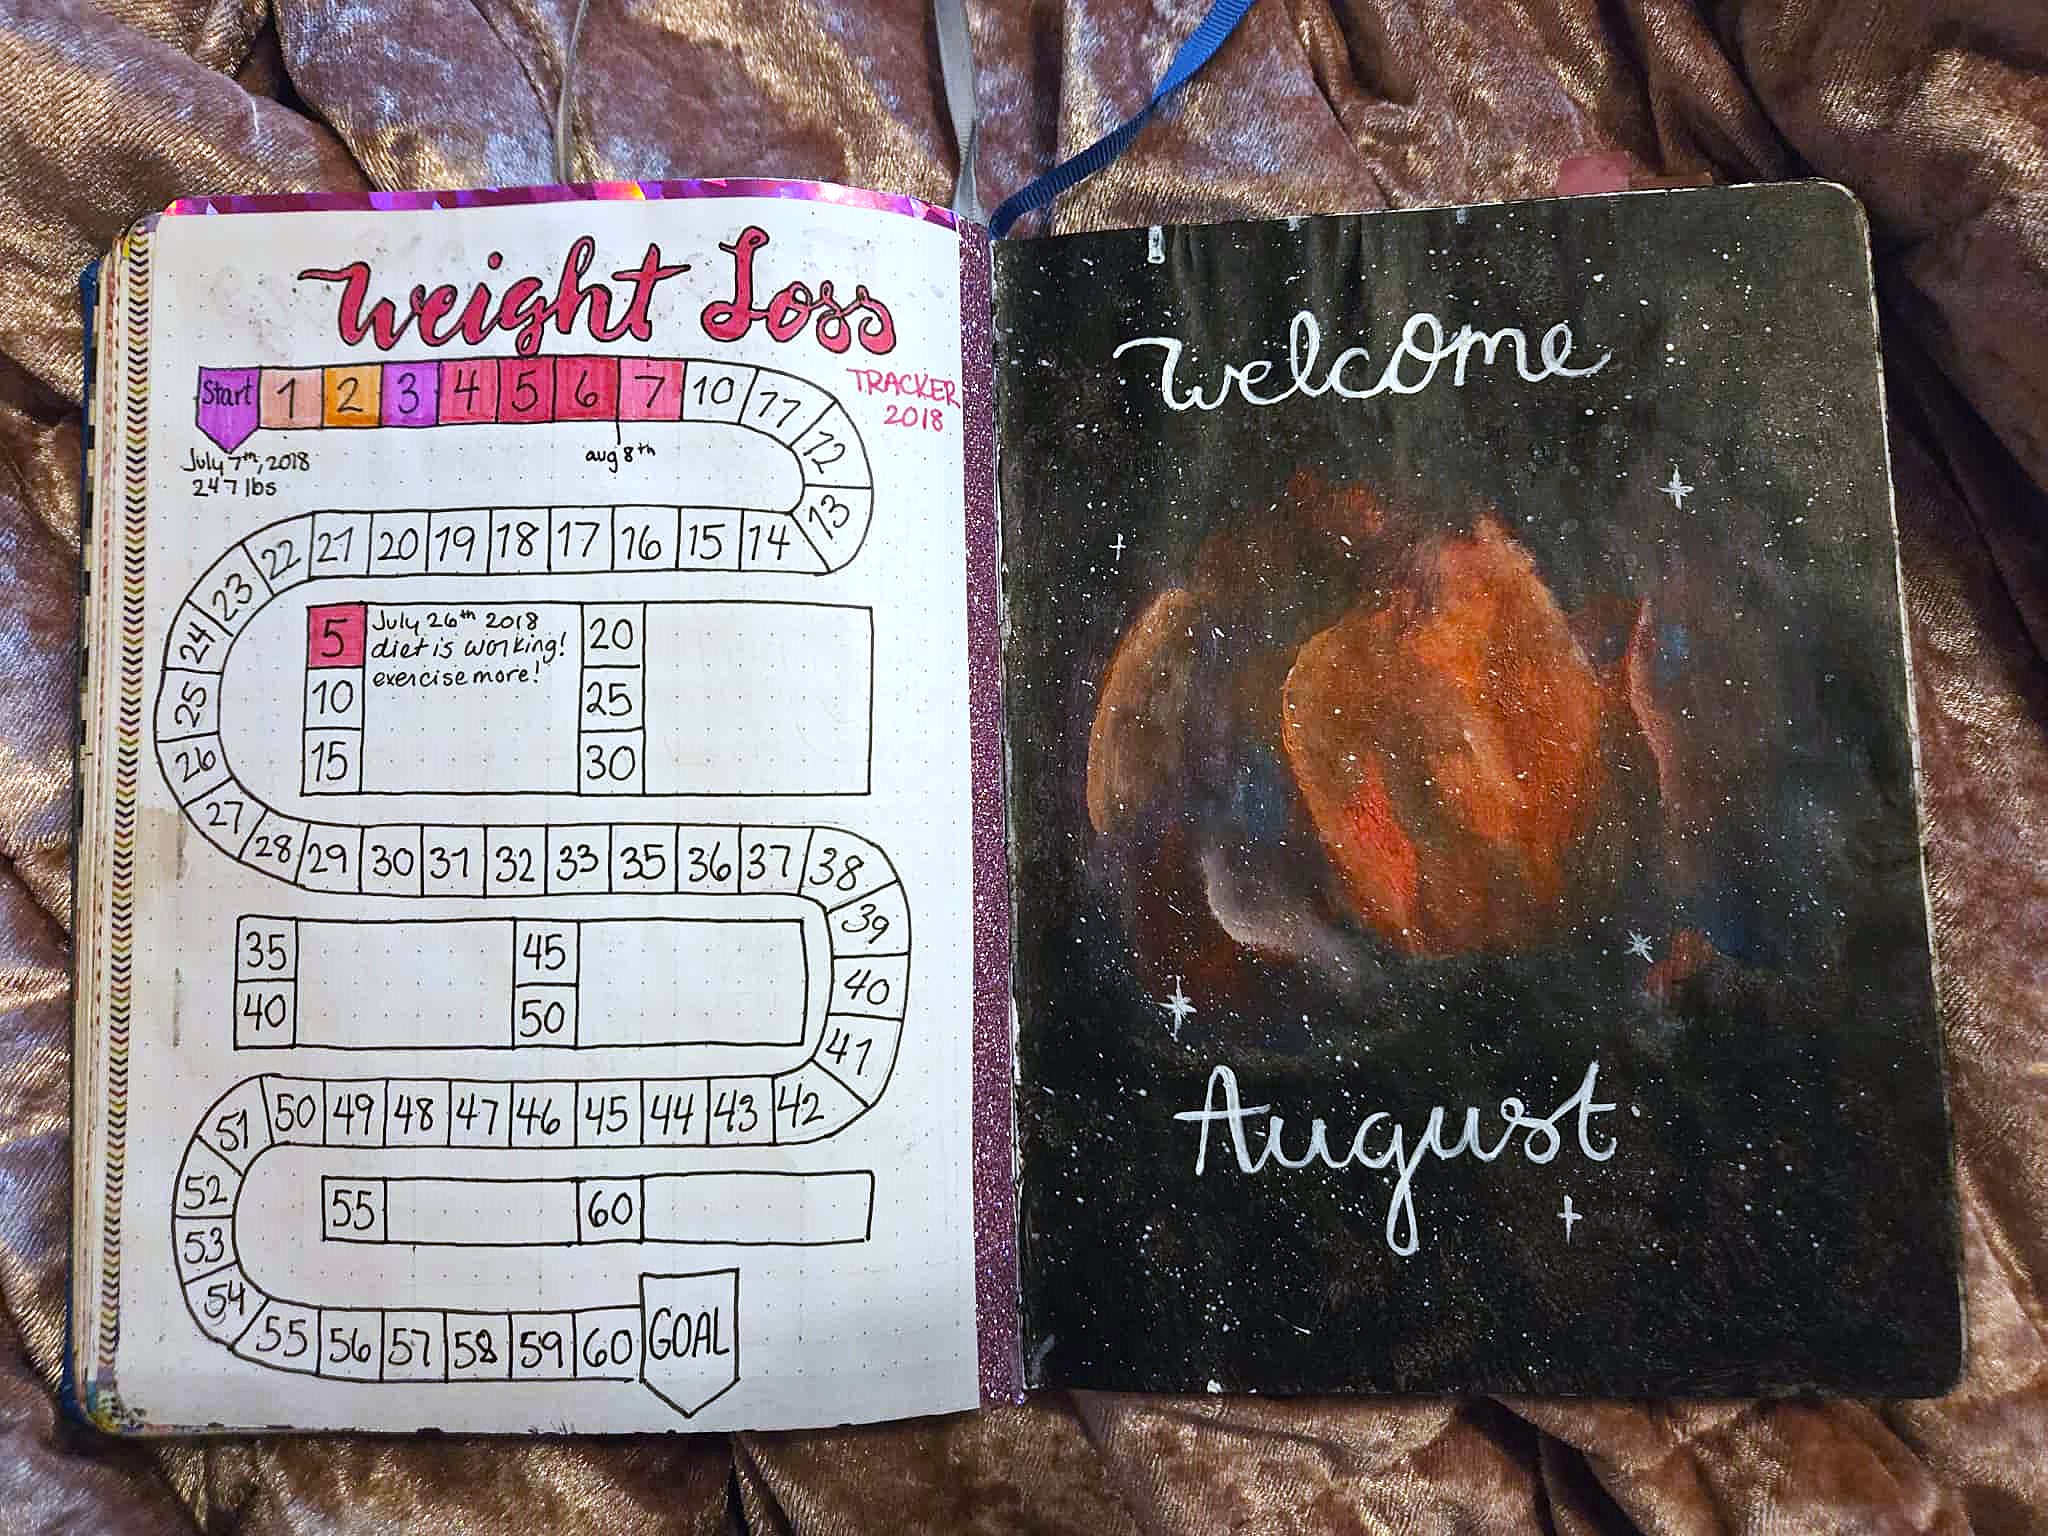 Weight Loss
TRACKER
2018
Start 1 2 3 4 5 6 7 10 11 12 13
July 7th, 2018
247 lbs
aug 8th
22 21 20 19 18 17 16 15 14
23
24
25
26
27
5 July 26th 2018
diet is working!
exercise more!
10
15
20
25
30
28 29 30 31 32 33 35 36 37 38
39
40
41
35
40
45
50
51 50 49 48 47 46 45 44 43 42
52
53
54
55 60
55 56 57 58 59 60 GOAL
Welcome
August